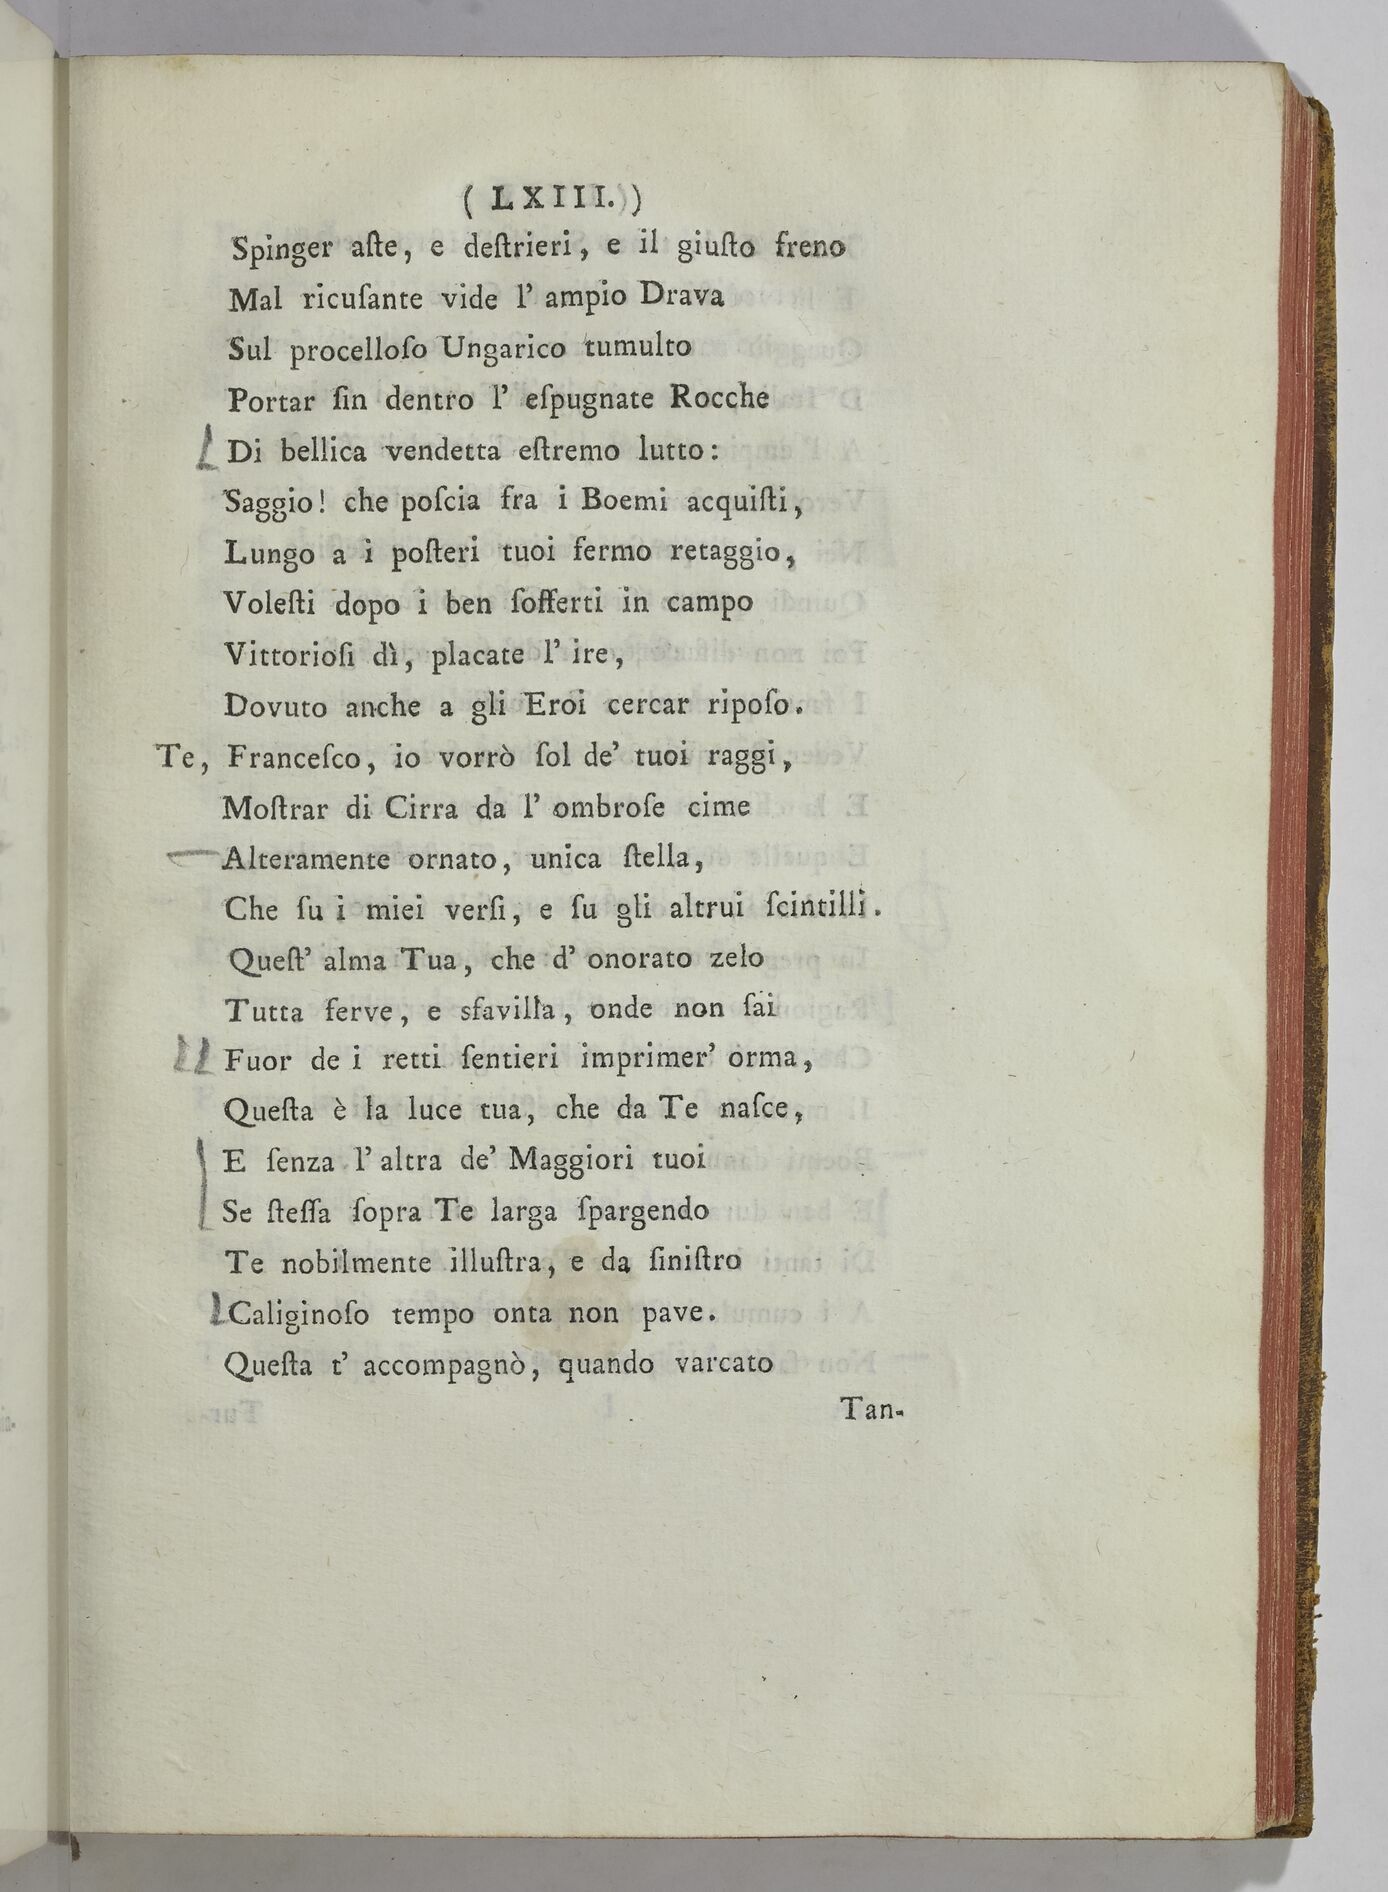 ( LXIII. )
Spinger aſte, e deſtrieri, e il giuſto freno
Mal ricuſante vide l' ampio Drava
Sul procelloſo Ungarico tumulto
Portar ſin dentro l' eſpugnate Rocche
Di bellica vendetta eſtremo lutto:
Saggio! che poſcia fra i Boemi acquiſti,
Lungo a i poſteri tuoi fermo retaggio,
Voleſti dopo i ben ſofferti in campo
Vittorioſi dì, placate l' ire,
Dovuto anche a gli Eroi cercar ripoſo.
Te, Franceſco, io vorrò ſol de' tuoi raggi,
Moſtrar di Cirra da l' ombroſe cime
Alteramente ornato, unica ſtella,
Che ſu i miei verſi, e ſu gli altrui ſcintilli.
Queſt' alma Tua, che d' onorato zelo
Tutta ferve, e sfavilla, onde non ſai
Fuor de i retti ſentieri imprimer' orma,
Queſta è la luce tua, che da Te naſce,
E ſenza l' altra de' Maggiori tuoi
Se ſteſſa ſopra Te larga ſpargendo
Te nobilmente illuſtra, e da ſiniſtro
Caliginoſo tempo onta non pave.
Queſta t' accompagnò, quando varcato
Tan-